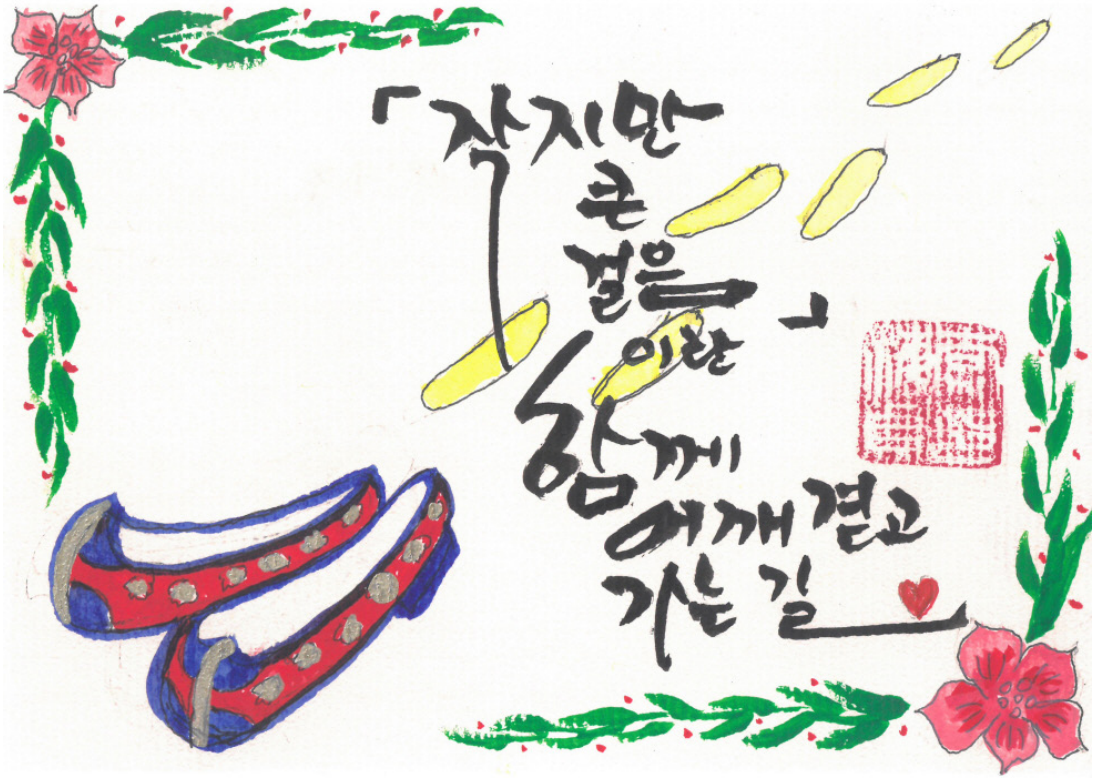 「작지만
큰
걸음」
이란
함께
어깨 겯고
가는 길